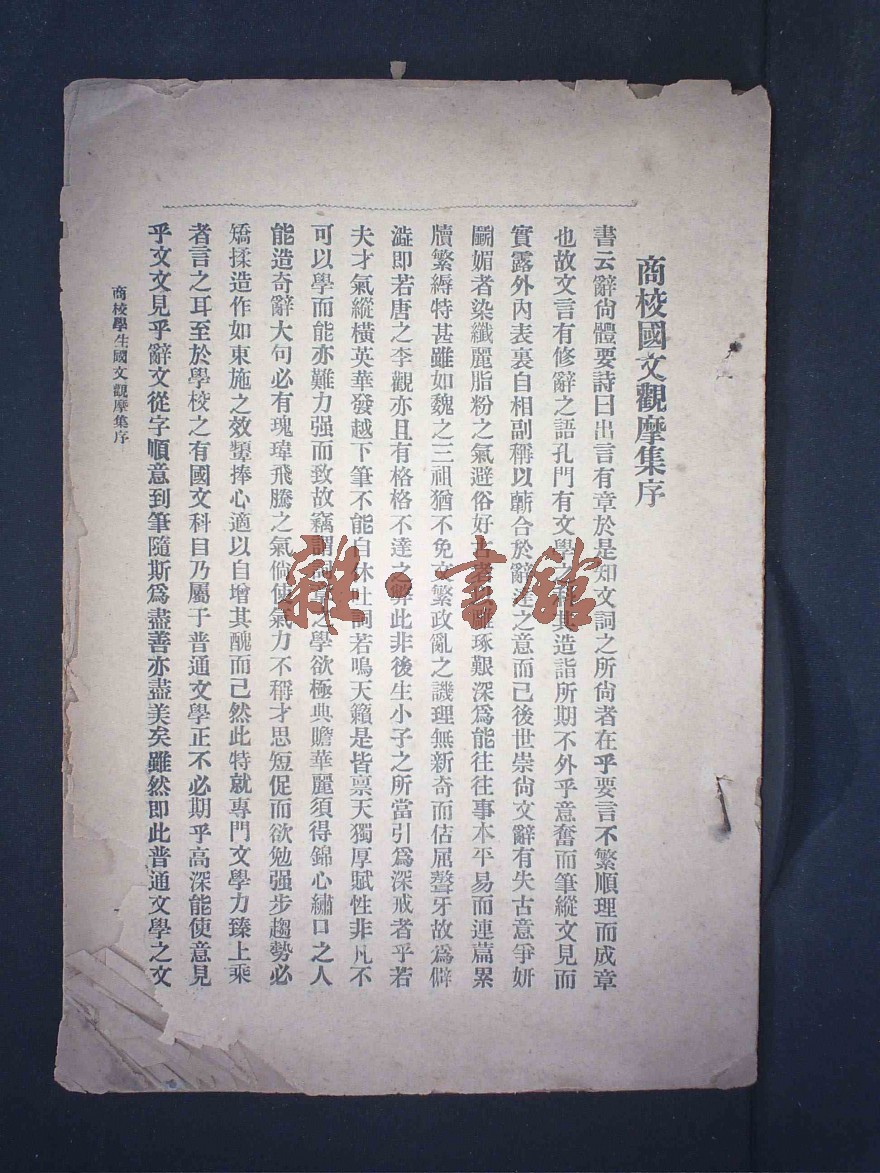 商校國文觀摩集序
書云辭尙體要詩曰出言有章於是知文詞之所尙者在乎要言不繁順理而成章
也故文言有修辭之語孔門有文學之科其造詣所期不外乎意奮而筆縱文見而
實露外內表裏自相副稱以蘄合於辭達之意而已後世崇尙文辭有失古意爭妍
鬭媚者染纖麗脂粉之氣避俗好古者以雕琢艱深爲能往往事本平易而連篇累
牘繁縟特甚雖如魏之三祖猶不免文繁政亂之譏理無新奇而佶屈聱牙故爲僻
澁卽若唐之李觀亦且有格格不達之弊此非後生小子之所當引爲深戒者乎若
夫才氣縱橫英華發越下筆不能自休吐詞若鳴天籟是皆禀天獨厚賦性非凡不
可以學而能亦難力强而致故竊謂詞章之學欲極典贍華麗須得錦心繡口之人
能造奇辭大句必有瑰瑋飛騰之氣倘使氣力不稱才思短促而欲勉强步趨勢必
矯揉造作如東施之效顰捧心適以自增其醜而已然此特就專門文學力臻上乘
者言之耳至於學校之有國文科目乃屬于普通文學正不必期乎高深能使意見
乎文文見乎辭文從字順意到筆隨斯爲盡善亦盡美矣雖然卽此普通文學之文
商校學生國文觀摩集序
雜·書館